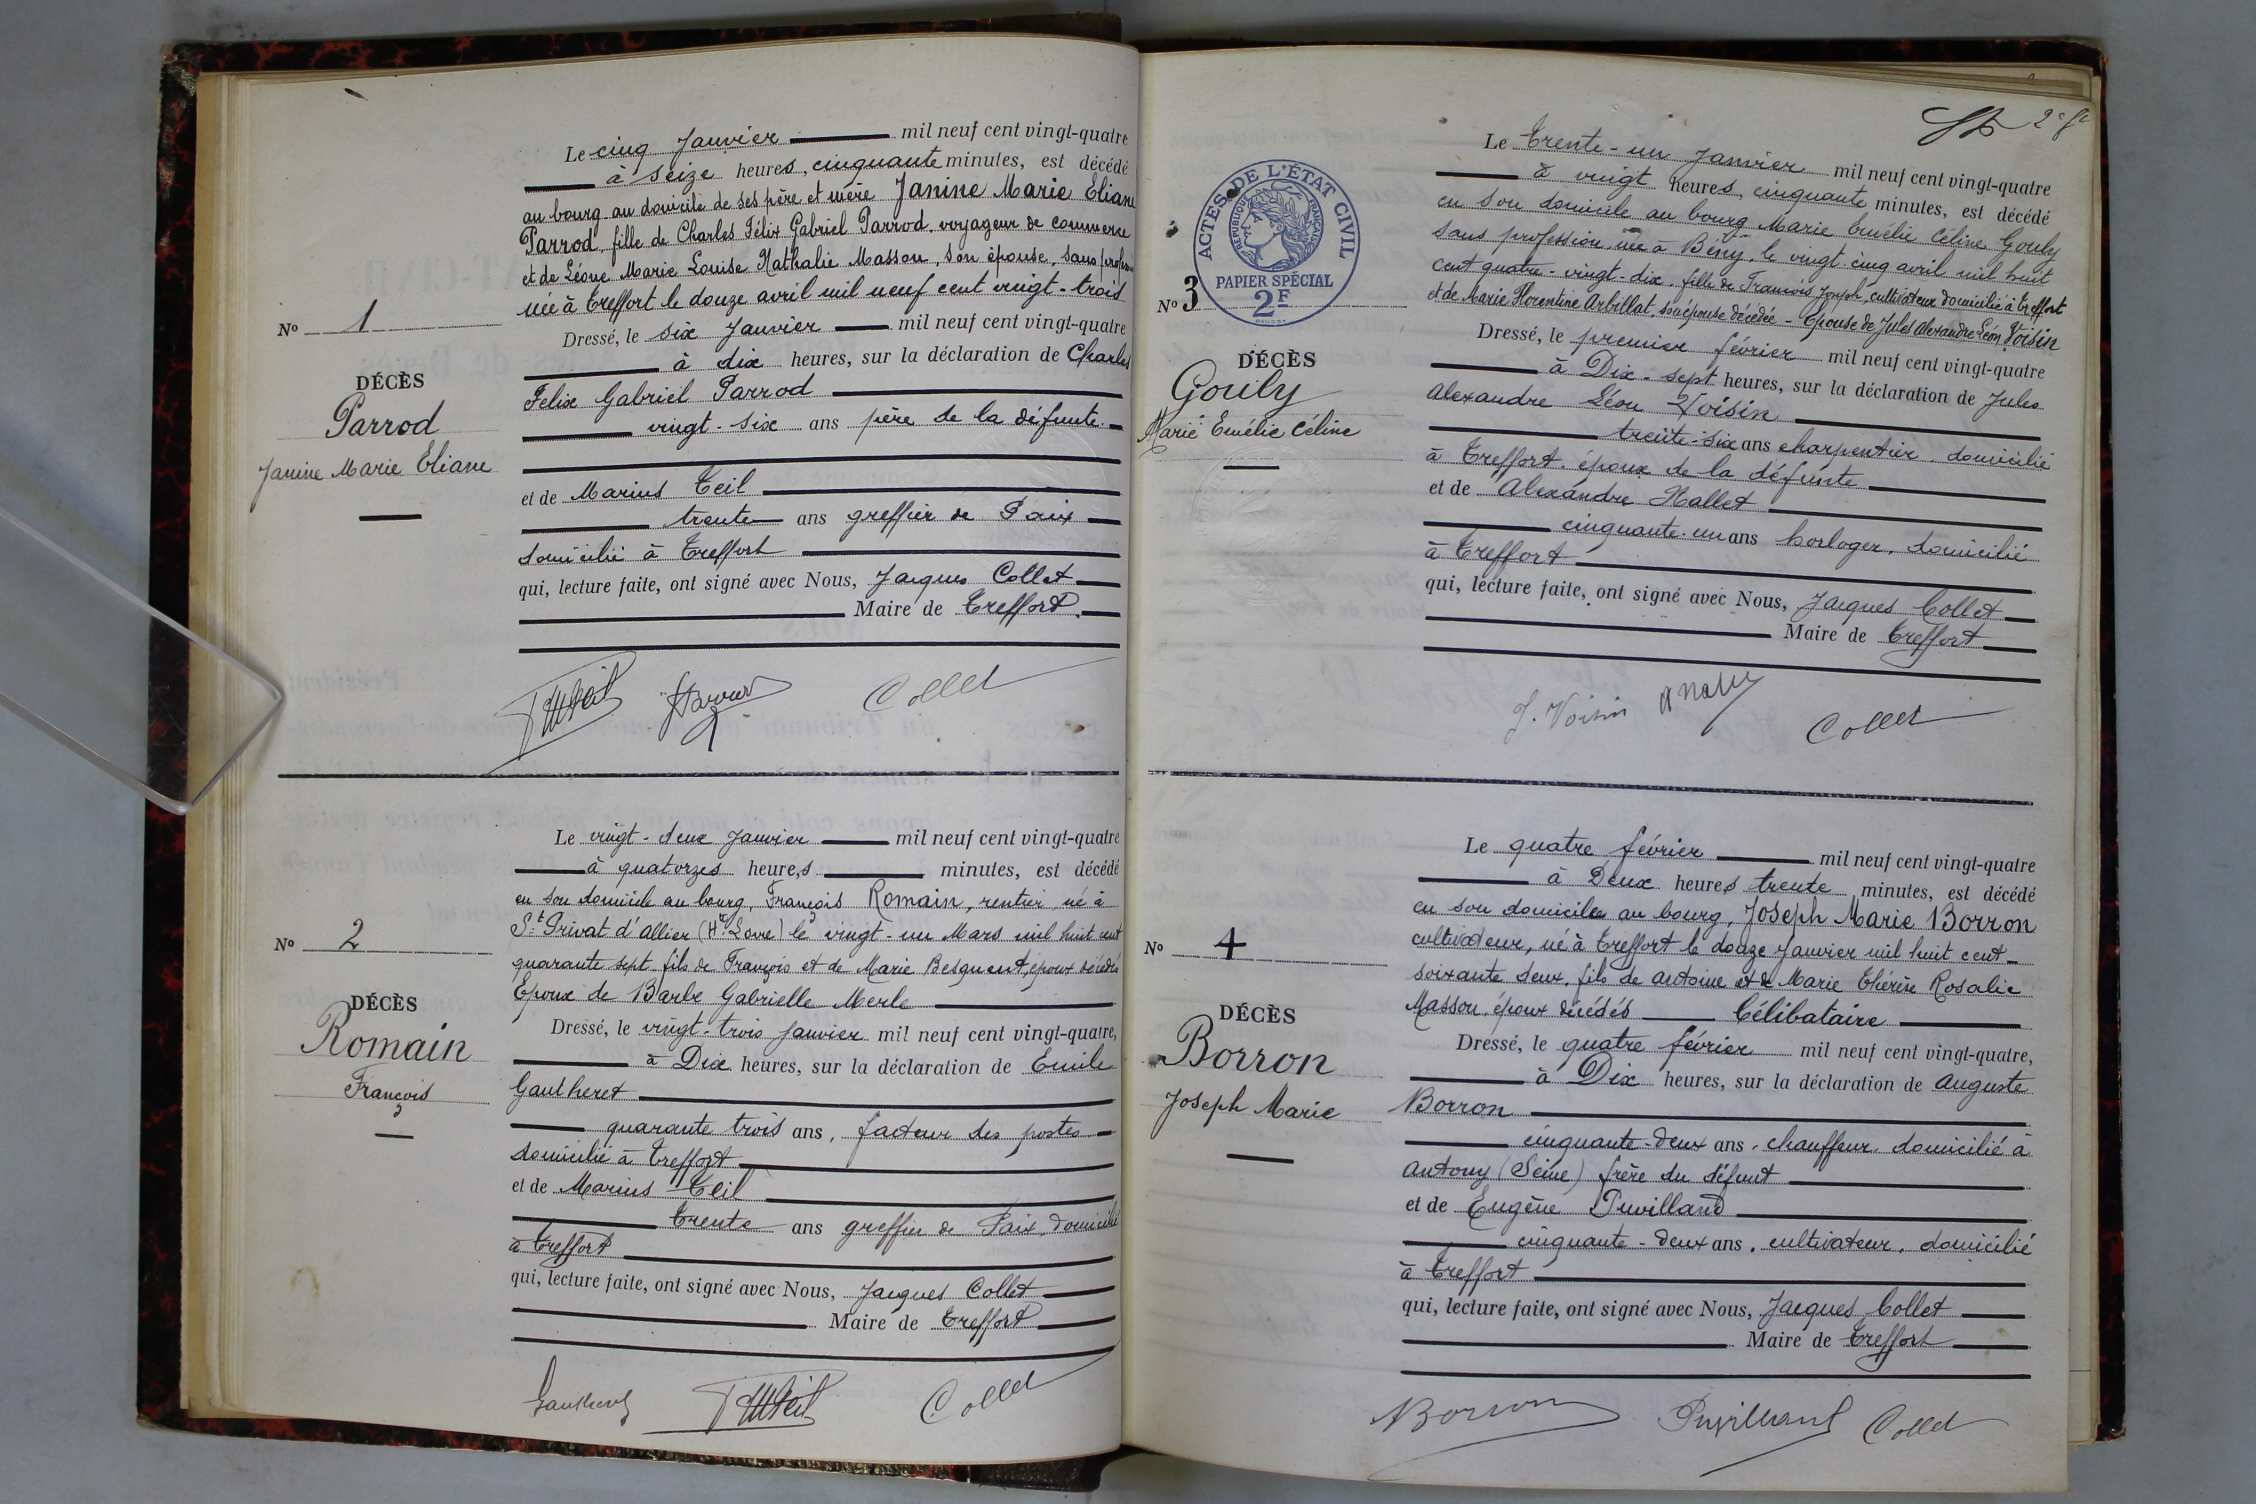 Le cinq Janvier mil neuf cent vingt-quatre
à seize heures, cinquante minutes, est décédé
au bourg au domicile de ses père et mère Janine Marie Eliane
Parrod, fille de Charles Félix Gabriel Parrod, voyageur de commerce
et de Léone Marie Louise Nathalie Masson, son épouse, sans
née à Treffort le douze avril mil neuf cent vingt-trois
No 1
Dressé, le six Janvier mil neuf cent vingt-quatre
à dix heures, sur la déclaration de Charles
DÉCÈS
Parrod
Janine Marie Eliane
Felix Gabriel Parrod
vingt-six ans père de la défunte
et de Marius Teil
trente ans greffier de Paix
domicilié à Treffort
qui, lecture faite, ont signé avec Nous, Jacques Collet
Maire de Treffort.
Collet
Le vingt-deux Janvier mil neuf cent vingt-quatre
à quatorzes heures minutes, est décédé
en son domicile au bourg, François Romain, rentier né à
St Privat d'Allier (Hte Loire) le vingt-un Mars mil huit cent
quarante sept fils de François et de Marie Besquent, époux décédés
Epoux de Barbe Gabrielle Merle
No 2
DÉCÈS
Romain
François
Dressé, le vingt-trois Janvier mil neuf cent vingt-quatre,
à Dix heures, sur la déclaration de Emile
Gautheret
quarante trois ans, facteur des postes
domicilié à Treffort
et de Marius Teil
trente ans greffier de Paix, domicilié
à Treffort
qui, lecture faite, ont signé avec Nous, Jacques Collet
Maire de Treffort
Gautheret
Collet
2e ft
ACTES DE L'ÉTAT CIVIL
RÉPUBLIQUE FRANÇAISE
PAPIER SPÉCIAL
2F
Le Trente-un Janvier mil neuf cent vingt-quatre
à vingt heures, cinquante minutes, est décédé
en son domicile au bourg Marie Emélie Céline Gouly
sans profession née à Bény, le vingt-cinq avril mil huit
cent quatre-vingt-dix, fille de François Joseph, cultivateur domicilié à Treffort
et de Marie Florentine Arbillat, son épouse décédée - Epouse de Jules Alexandre Léon Voisin
No 3
DÉCÈS
Gouly
Marie Emélie Céline
Dressé, le premier février mil neuf cent vingt-quatre
à Dix-sept heures, sur la déclaration de Jules
Alexandre Léon Voisin
trente-six ans charpentier domicilié
à Treffort, époux de la défunte
et de Alexandre Nallet
cinquante-un ans horloger, domicilié
à Treffort
qui, lecture faite, ont signé avec Nous, Jacques Collet
Maire de Treffort
J. Voisin
Collet
Le quatre février mil neuf cent vingt-quatre
à Deux heures trente minutes, est décédé
en son domicile au bourg, Joseph Marie Borron
cultivateur, né à Treffort le douze Janvier mil huit cent-
soixante deux, fils de Antoine et de Marie Thérèse Rosalie
Masson, époux décédés Célibataire
No 4
DÉCÈS
Borron
Joseph Marie
Dressé, le quatre février mil neuf cent vingt-quatre,
à Dix heures, sur la déclaration de Auguste
Borron
cinquante-deux ans, chauffeur, domicilié à
Antony (Seine) frère du défunt
et de Eugène Puvilland
cinquante-deux ans, cultivateur, domicilié
à Treffort
qui, lecture faite, ont signé avec Nous, Jacques Collet
Maire de Treffort
Borron
Puvilland
Collet